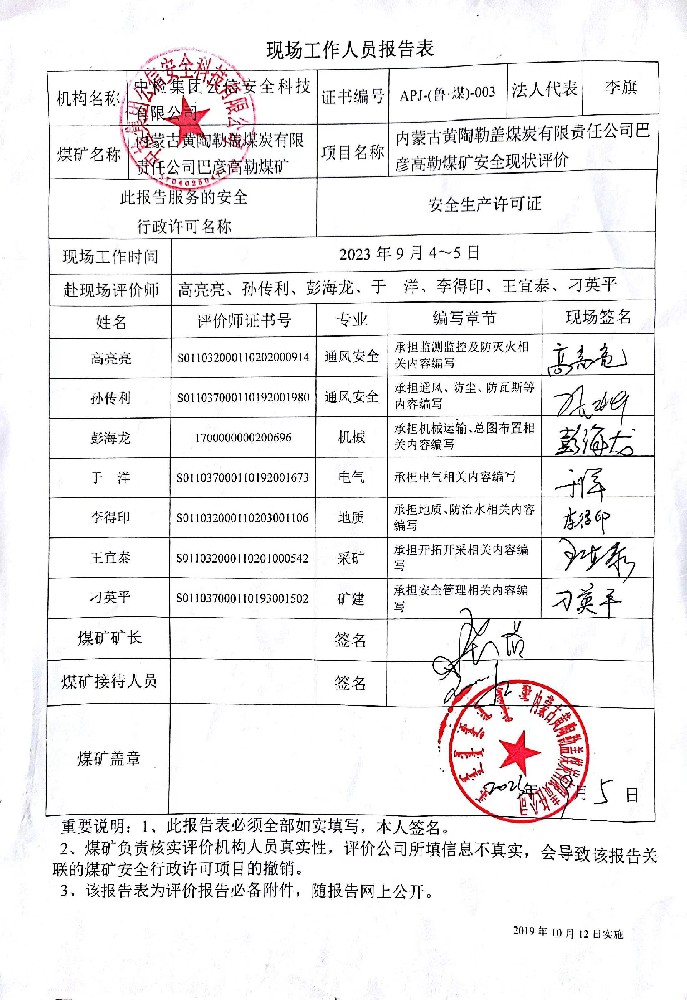 现场工作人员报告表
机构名称 中检集团公信安全科技有限公司 证书编号 APJ-(鲁·煤)-003 法人代表 李旗
煤矿名称 内蒙古黄陶勒盖煤炭有限责任公司巴彦高勒煤矿 项目名称 内蒙古黄陶勒盖煤炭有限责任公司巴彦高勒煤矿安全现状评价
此报告服务的安全行政许可名称 安全生产许可证
现场工作时间 2023年9月4~5日
赴现场评价师 高亮亮、孙传利、彭海龙、于 洋、李得印、王宜泰、刁英平
姓名 评价师证书号 专业 编写章节 现场签名
高亮亮 S011032000110202000914 通风安全 承担监测监控及防灭火相关内容编写 高亮亮
孙传利 S011037000110192001980 通风安全 承担通风、防尘、防瓦斯等内容编写
彭海龙 1700000000200696 机械 承担机械运输、总图布置相关内容编写 彭海龙
于 洋 S011037000110192001673 电气 承担电气相关内容编写 于洋
李得印 S011032000110203001106 地质 承担地质、防治水相关内容编写 李得印
王宜泰 S011032000110201000542 采矿 承担开拓开采相关内容编写 王宜泰
刁英平 S011037000110193001502 矿建 承担安全管理相关内容编写 刁英平
煤矿矿长 签名
煤矿接待人员 签名
煤矿盖章
年 月 5 日
重要说明：1、此报告表必须全部如实填写，本人签名。
2、煤矿负责核实评价机构人员真实性，评价公司所填信息不真实，会导致该报告关
联的煤矿安全行政许可项目的撤销。
3、该报告表为评价报告必备附件，随报告网上公开。
2019年10月12日实施